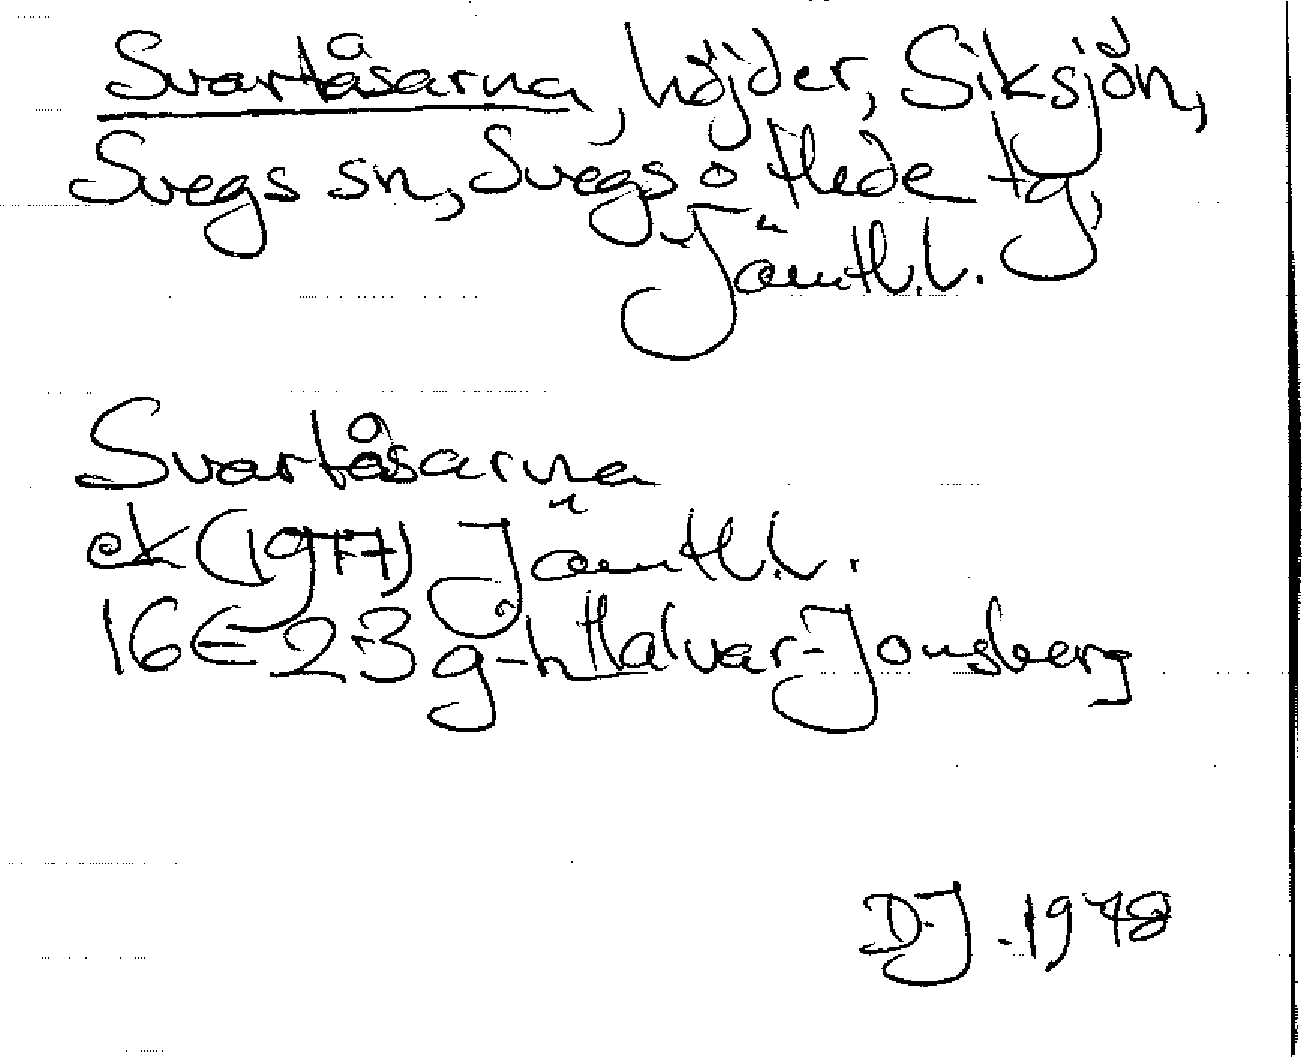 Svartåsarna, höjder, Siksjön,
Svegs sn, Svegs o Hede tg,
Jämtl.l.
Svartåsarna
ek (1977) Jämtl.l.
16E 23 g-h Halvar-Jonsberg
DJ. 1978